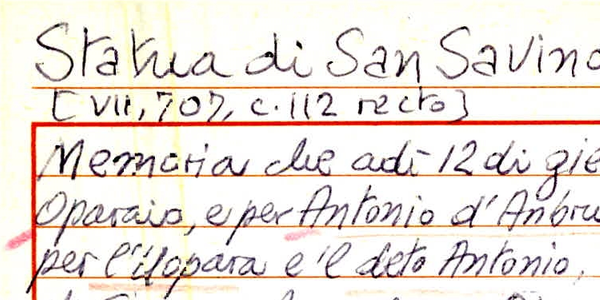 Statua di San Savino
[VII, 707, c. 112 recto]
Memoria che adì 12 di gie
Oparaio, e per Antonio d'Anbru
per l'Uopara e 'l deto Antonio,